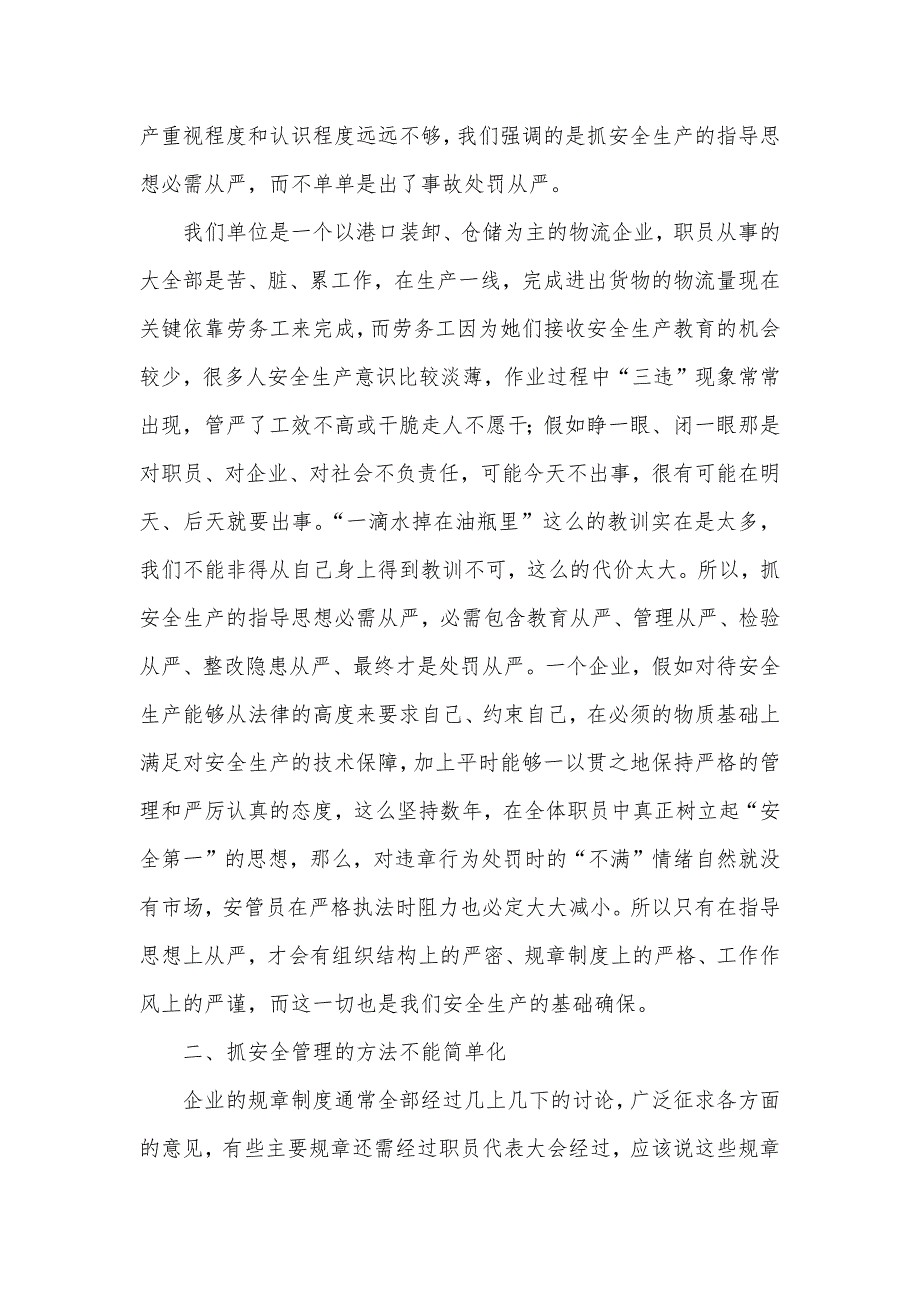 产重视程度和认识程度远远不够，我们强调的是抓安全生产的指导思
想必需从严，而不单单是出了事故处罚从严。
我们单位是一个以港口装卸、仓储为主的物流企业，职员从事的
大全部是苦、脏、累工作，在生产一线，完成进出货物的物流量现在
关键依靠劳务工来完成，而劳务工因为她们接收安全生产教育的机会
较少，很多人安全生产意识比较淡薄，作业过程中“三违”现象常常
出现，管严了工效不高或干脆走人不愿干；假如睁一眼、闭一眼那是
对职员、对企业、对社会不负责任，可能今天不出事，很有可能在明
天、后天就要出事。“一滴水掉在油瓶里”这么的教训实在是太多，
我们不能非得从自己身上得到教训不可，这么的代价太大。所以，抓
安全生产的指导思想必需从严，必需包含教育从严、管理从严、检验
从严、整改隐患从严、最终才是处罚从严。一个企业，假如对待安全
生产能够从法律的高度来要求自己、约束自己，在必须的物质基础上
满足对安全生产的技术保障，加上平时能够一以贯之地保持严格的管
理和严厉认真的态度，这么坚持数年，在全体职员中真正树立起“安
全第一”的思想，那么，对违章行为处罚时的“不满”情绪自然就没
有市场，安管员在严格执法时阻力也必定大大减小。所以只有在指导
思想上从严，才会有组织结构上的严密、规章制度上的严格、工作作
风上的严谨，而这一切也是我们安全生产的基础确保。
二、抓安全管理的方法不能简单化
企业的规章制度通常全部经过几上几下的讨论，广泛征求各方面
的意见，有些主要规章还需经过职员代表大会经过，应该说这些规章